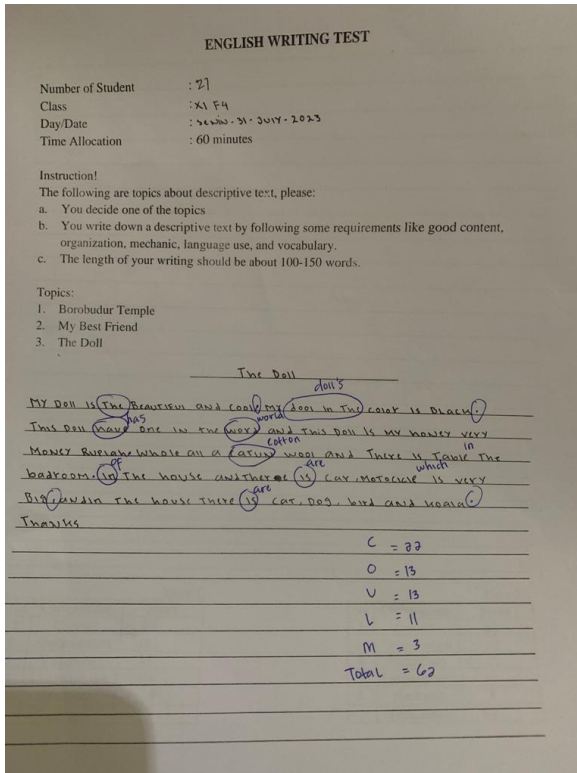 ENGLISH WRITING TEST
Number of Student : 27
Class : XI F4
Day/Date : senin - 31 - JULY - 2023
Time Allocation : 60 minutes
Instruction!
The following are topics about descriptive text, please:
a. You decide one of the topics
b. You write down a descriptive text by following some requirements like good content,
organization, mechanic, language use, and vocabulary.
c. The length of your writing should be about 100-150 words.
Topics:
1. Borobudur Temple
2. My Best Friend
3. The Doll
The Doll
doll's
MY Doll is The Beautiful and cool. My dool in The color is Black.
has world
This Doll have one in the word and This Doll is my honey very
cotton in
Money Rupiah. Whole all a wool and There is Table The
of are which
badroom. in The house and There is car, motocicle is very
are
Big, andin The house There is cat, Dog, bird and koala.
Thanks
C = 22
O = 13
V = 13
L = 11
M = 3
Total = 62